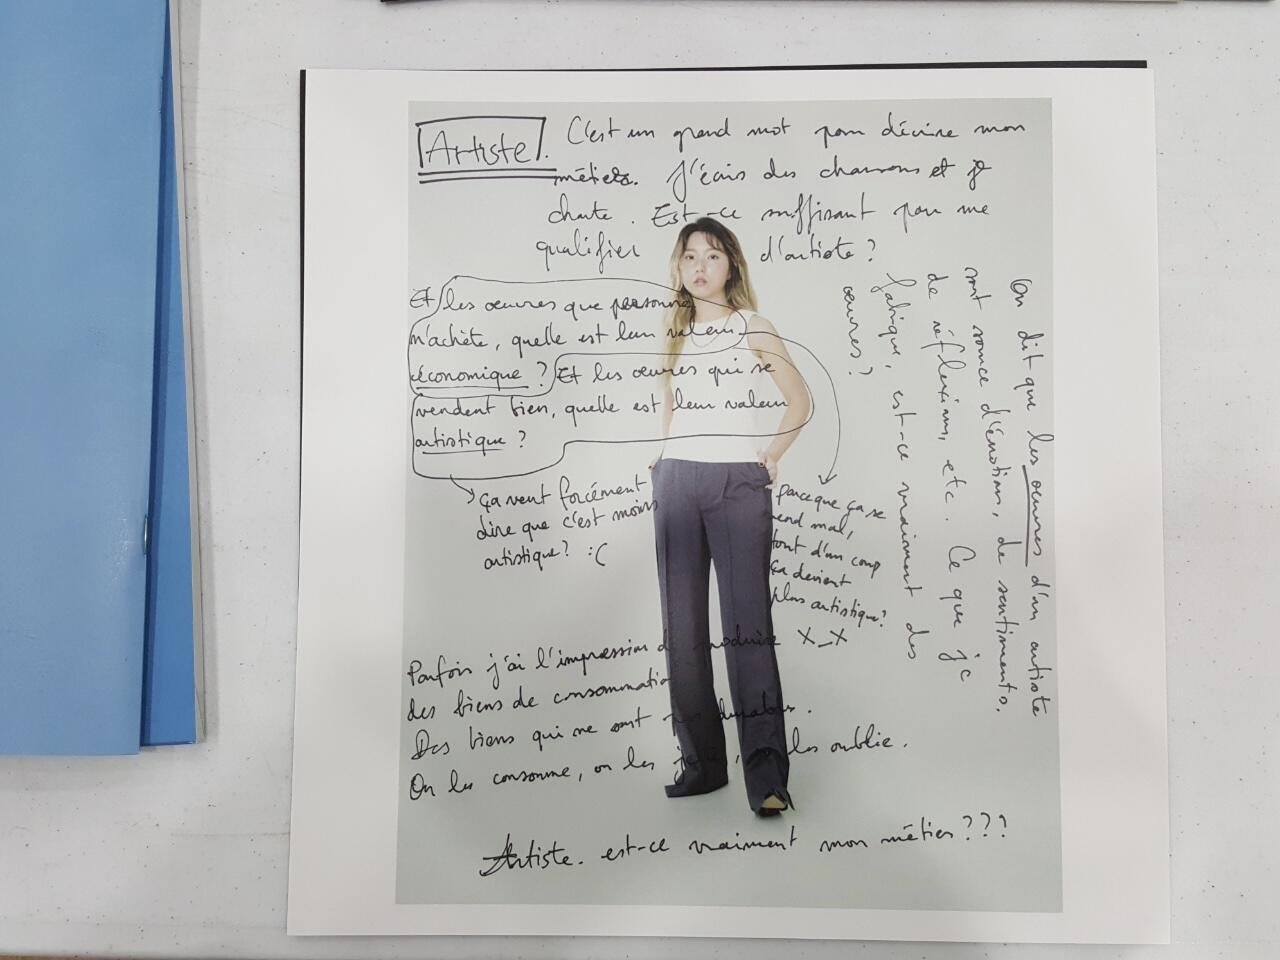 Artiste. C'est un grand mot pour décrire mon
métier. J'écris des chansons et je
chante. Est-ce suffisant pour me
qualifier d'artiste?
On dit que les œuvres d'un artiste
sont source d'émotions, de sentiments,
de réflexions, etc. Ce que je
fabrique, est-ce vraiment des
œuvres?
Et les œuvres que personne
n'achète, quelle est leur valeur
économique? Et les œuvres qui se
vendent bien, quelle est leur valeur
artistique?
ça veut forcément
dire que c'est moins
artistique? :(
parce que ça se
vend mal,
tout d'un coup
ça devient
plus artistique?
X_X
Parfois j'ai l'impression de produire
des biens de consommation
Des biens qui ne sont pas durables.
On les consomme, on les jette, on les oublie.
Artiste. est-ce vraiment mon métier???